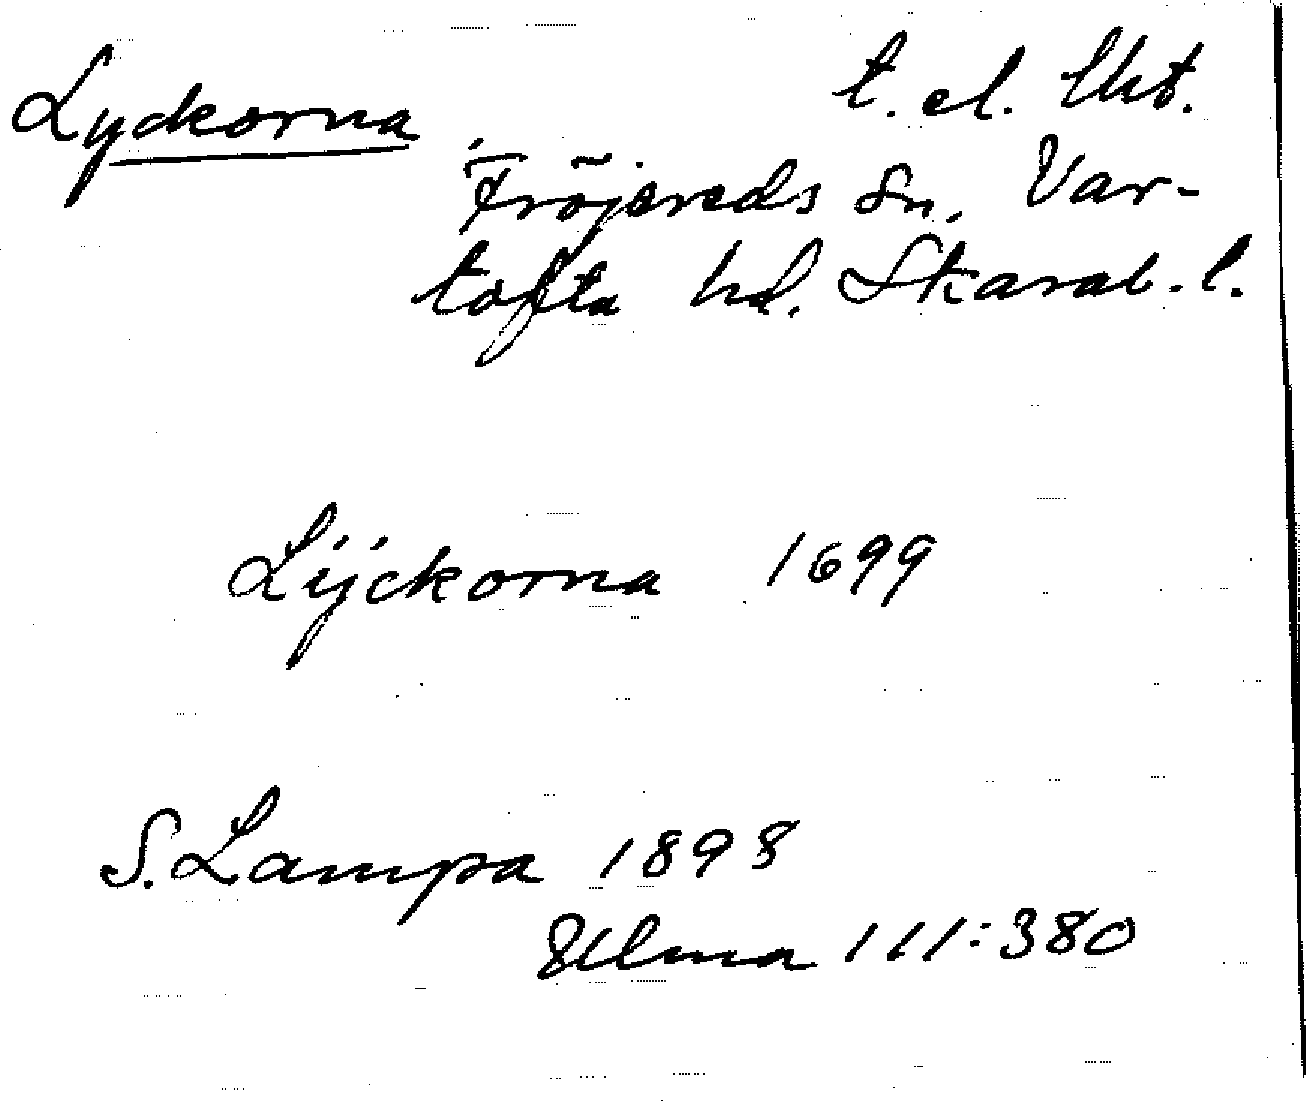 Lyckorna t. el. lht.
Fröjereds sn, Var-
tofta hd. Skarab. l.
Lÿckorna 1699
S. Lampa 1898
Ulma 111:380